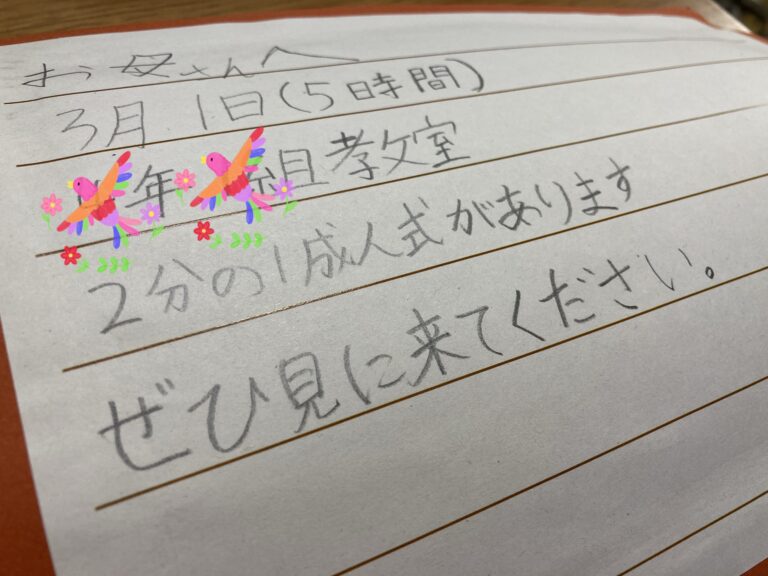 お母さんへ
3月1日(5時間)
年 組教室
2分の1成人式があります
ぜひ見に来てください。